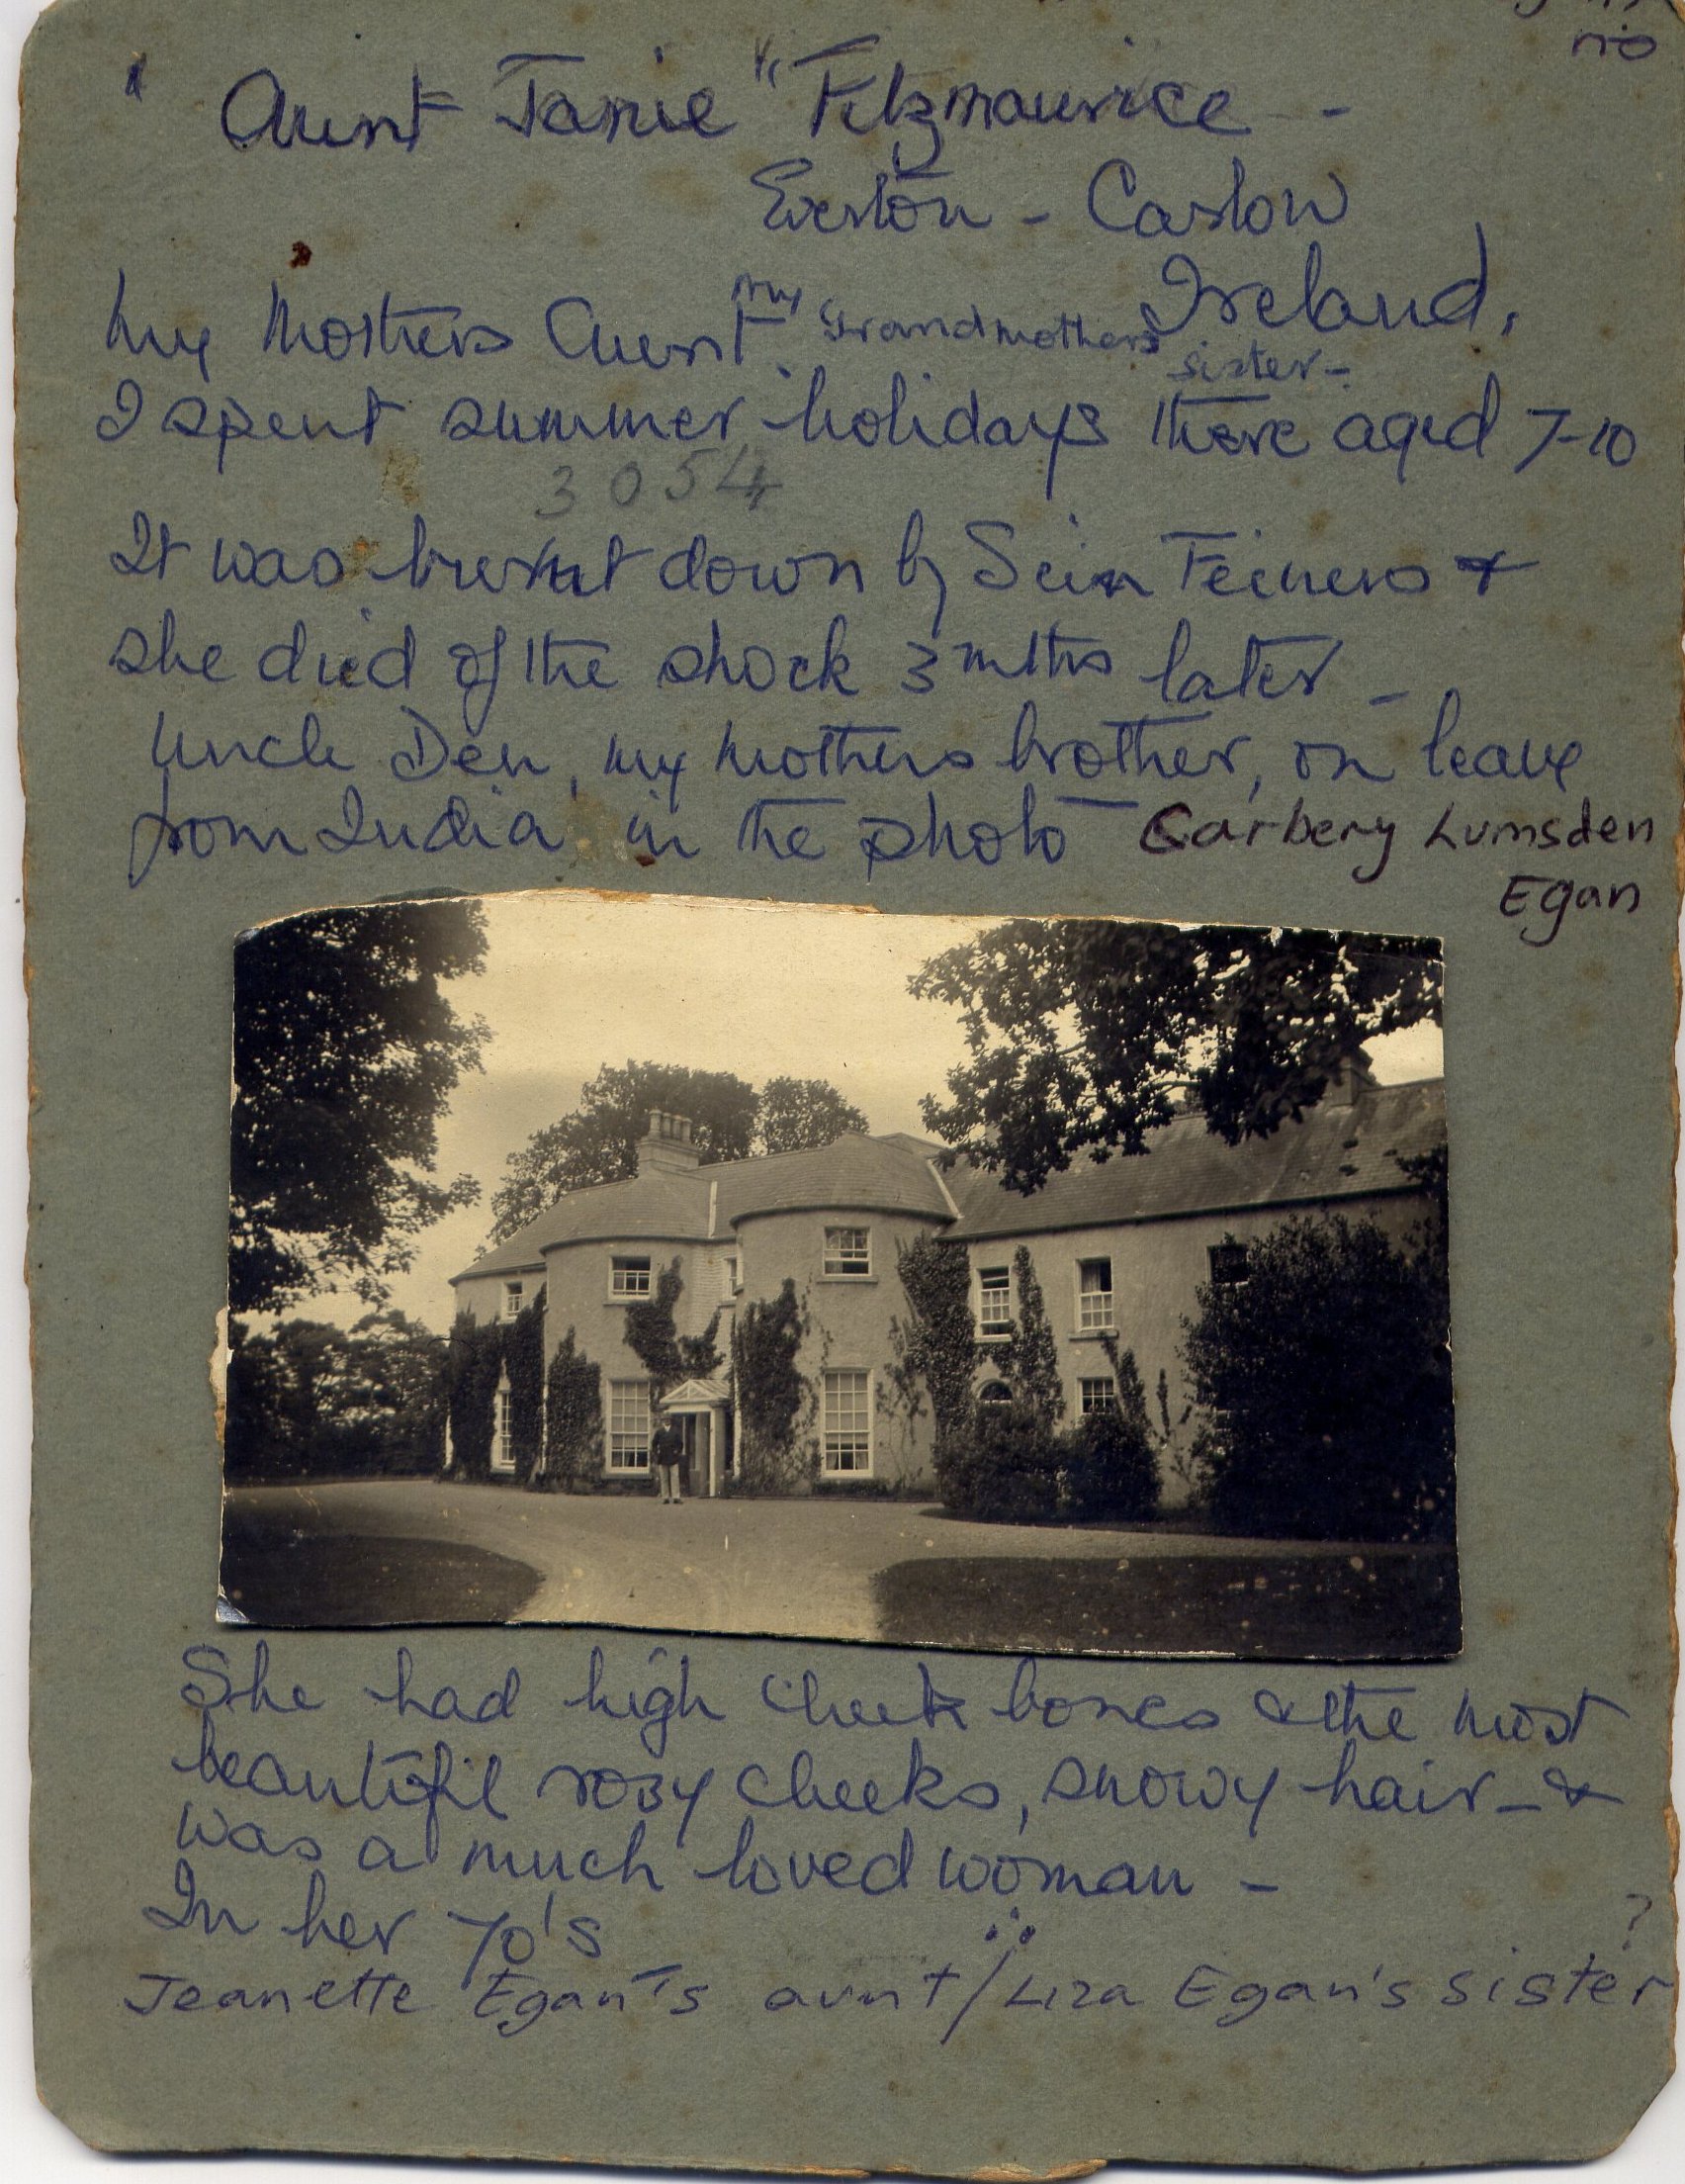 no
"Aunt Janie" Fitzmaurice -
Everton - Carlow
Ireland.
My Mothers Aunt - my Grandmothers
sister -
I spent summer holidays there aged 7-10
3054
It was burnt down by Sein Feiners &
she died of the shock 3 mths later -
Uncle Den, my mothers brother, on leave
from India, in the photo - Carbery Lumsden
Egan
She had high cheek bones & the most
beautifil rosy cheeks, snowy hair - &
was a much loved woman -
In her 70's
?
Jeanette Egan's aunt / Liza Egan's sister